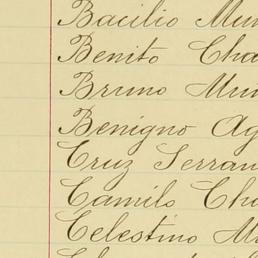 Bacilio Mun
Benito Cha
Bruno Mun
Benigno Ag
Cruz Serran
Camilo Cha
Celestino Mu